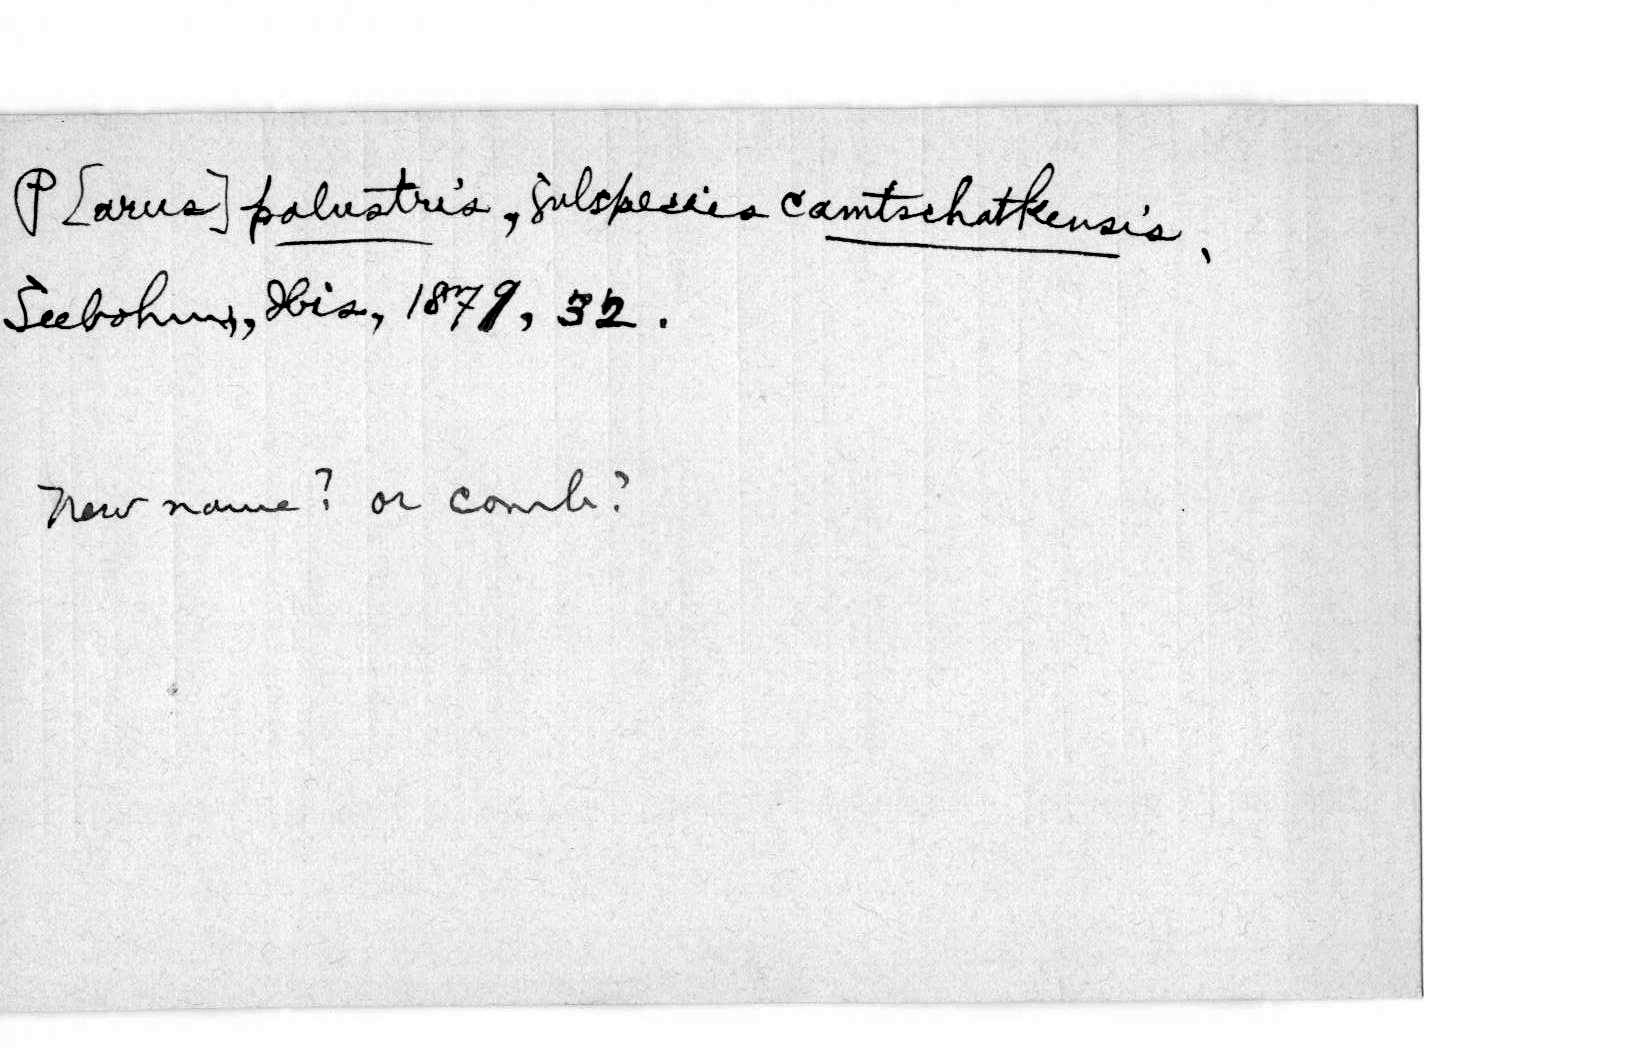 P[arus] palustris, subspecies camtschatkensis,
Seebohm, Ibis, 1879, 32.
New name? or comb?